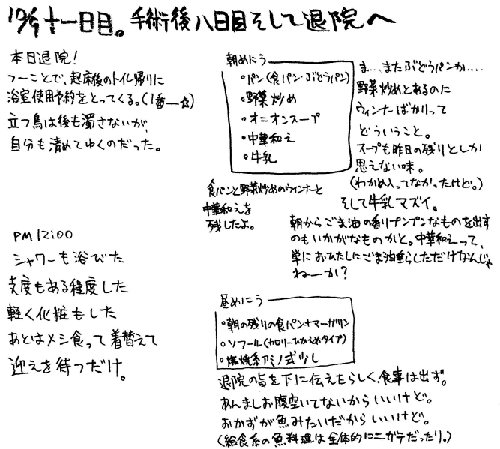 十一日目。手術後八日目そして退院へ
本日退院!
つーことで、起床後のトイレ帰りに
浴室使用予約をとってくる。(1番―☆)
立つ鳥は後も濁さないが、
自分も清めてゆくのだった。
朝めにう
・パン(食パン・ぶどうパン)
・野菜炒め
・オニオンスープ
・中華和え
・牛乳
ま…またぶどうパンか…
野菜炒めとあるのに
ウィンナーばかりって
どういうこと。
スープも昨日の残りとしか
思えない味。
(わかめ入ってなかったけど。)
そして牛乳マズイ。
食パンと野菜炒めのウィンナーと
中華和えを
残したよ。
朝からごま油の香りプンプンなものを出す
のもいかがなものかと。中華和えって、
単におひたしにごま油垂らしただけなんじゃ
ねーか?
PM 12:00
シャワーも浴びた
支度もある程度した
軽く化粧もした
あとはメシ食って着替えて
迎えを待つだけ。
昼めにう
・朝の残りの食パン+マーガリン
・ソフール(カロリーひかえめタイプ)
・燃焼系アミノ式なし
退院の旨を下に伝えもらしく、食事は出ず。
あんましお腹空いてないからいいけど。
おかずが魚みたいだからいいけど。
(給食系の魚料理は全体的にニガテだったり。)